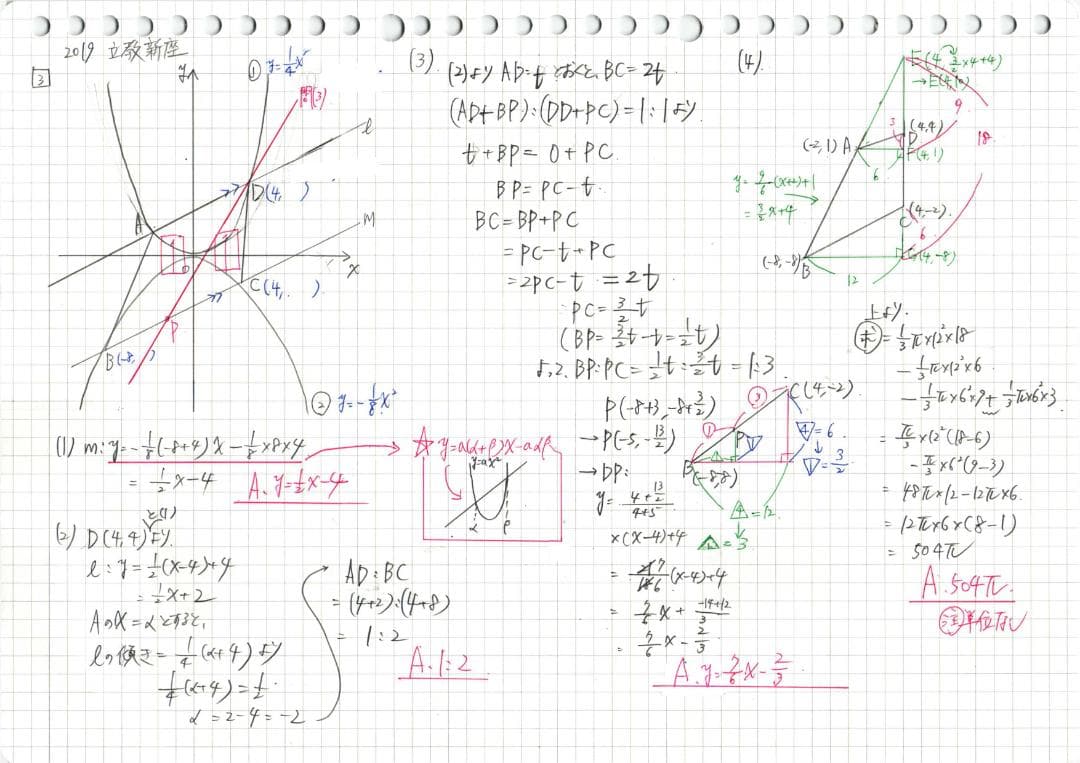 2019 立教新座
3
① y=1/4x²
y
問(3)
l
D(4, )
m
A
1
2
O
x
C(4, )
P
B(-8, )
② y=-1/8x²
(1) m: y=-1/8(-8+4)x-1/8×8×4
=1/2x-4
A. y=1/2x-4
☆ y=a(α+β)x-aαβ
y=ax²
α
β
(2) D(4,4)と(1)より.
l: y=1/2(x-4)+4
=1/2x+2
Aのx=αとすると,
lの傾き=1/4(α+4)より
1/4(α+4)=1/2.
α=2-4=-2
AD:BC
=(4+2):(4+8)
=1:2
A. 1:2
(3).
(2)より AD=tとおくと, BC=2t.
(AD+BP):(DD+PC)=1:1より.
t+BP=0+PC.
BP=PC-t.
BC=BP+PC
=PC-t+PC
=2PC-t=2t
PC=3/2t
(BP=3/2t-t=1/2t)
よって. BP:PC=1/2t:3/2t=1:3.
P(-8+3, -8+3/2)
→P(-5, -13/2)
→DP:
y=(4+13/2)/(4+5)
×(x-4)+4
=21 7/18 6(x-4)+4
=7/6x+(-14+12)/3
=7/6x-2/3
A. y=7/6x-2/3
③
C(4,-2)
①
P
1
4=6
↓
1=3/2
B
(-8,-8)
1
4=12
↓
1=3
(4).
E(4, 3/2×4+4)
→E(4,10)
9
18
3
(4,4)
D
(-2,1) A
F(4,1)
6
y=9/6(x+2)+1
=3/2x+4
C
(4,-2)
6
(-8,-8)
B
G(4,-8)
12
上より.
求=1/3π×12²×18
-1/3π×12²×6
-1/3π×6²×9+1/3π×6²×3
=π/3×12²(18-6)
-π/3×6²(9-3)
=48π×12-12π×6
=12π×6×(8-1)
=504π
A. 504π.
注 単位なし